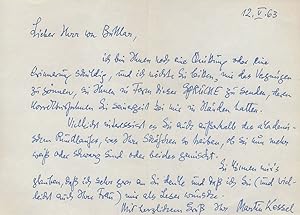 12. V. 63
Lieber Herr von Bothmer,
ich bin Ihnen noch eine Quittung oder eine
Erinnerung schuldig, und ich möchte Sie bitten, mir das Vergnügen
zu gönnen, sie Ihnen in Form dieser SPRÜCHE zu senden, deren
Korrekturfahnen Sie seinerzeit bei mir in Händen hatten.
Vielleicht interessiert es Sie auch außerhalb des akademi-
schen Rundlaufs, was Ihre
weiß oder schwarz sind oder beides gemischt.
Sie können mir's
glauben, daß ich sehr gern an Sie denke und daß ich Sie (und viel-
leicht auch Ihre Frau) mir als Leser wünsche.
Mit herzlichem Gruß Ihr Martin Kessel